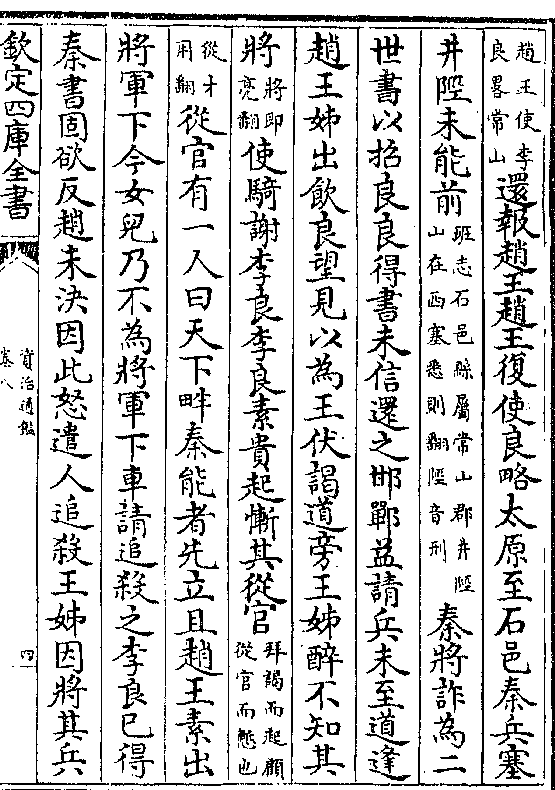 趙王使李
良畧常山
還報趙王趙王復使良略太原至石邑秦兵塞
井陘未能前
班志石邑縣屬常山郡井陘
山在西塞悉則翻陘音刑
秦將詐為二
世書以招良良得書未信還之邯鄲益請兵未至道逢
趙王姊出飲良望見以為王伏謁道旁王姊醉不知其
將
將即
亮翻
使騎謝李良李良素貴起慚其從官
拜謁而起顧
從官而慙也
從才
用翻
從官有一人曰天下畔秦能者先立且趙王素出
將軍下今女兒乃不為將軍下車請追殺之李良已得
秦書固欲反趙未決因此怒遣人追殺王姊因將其兵
欽定四庫全書
資治通鑑
卷八
四